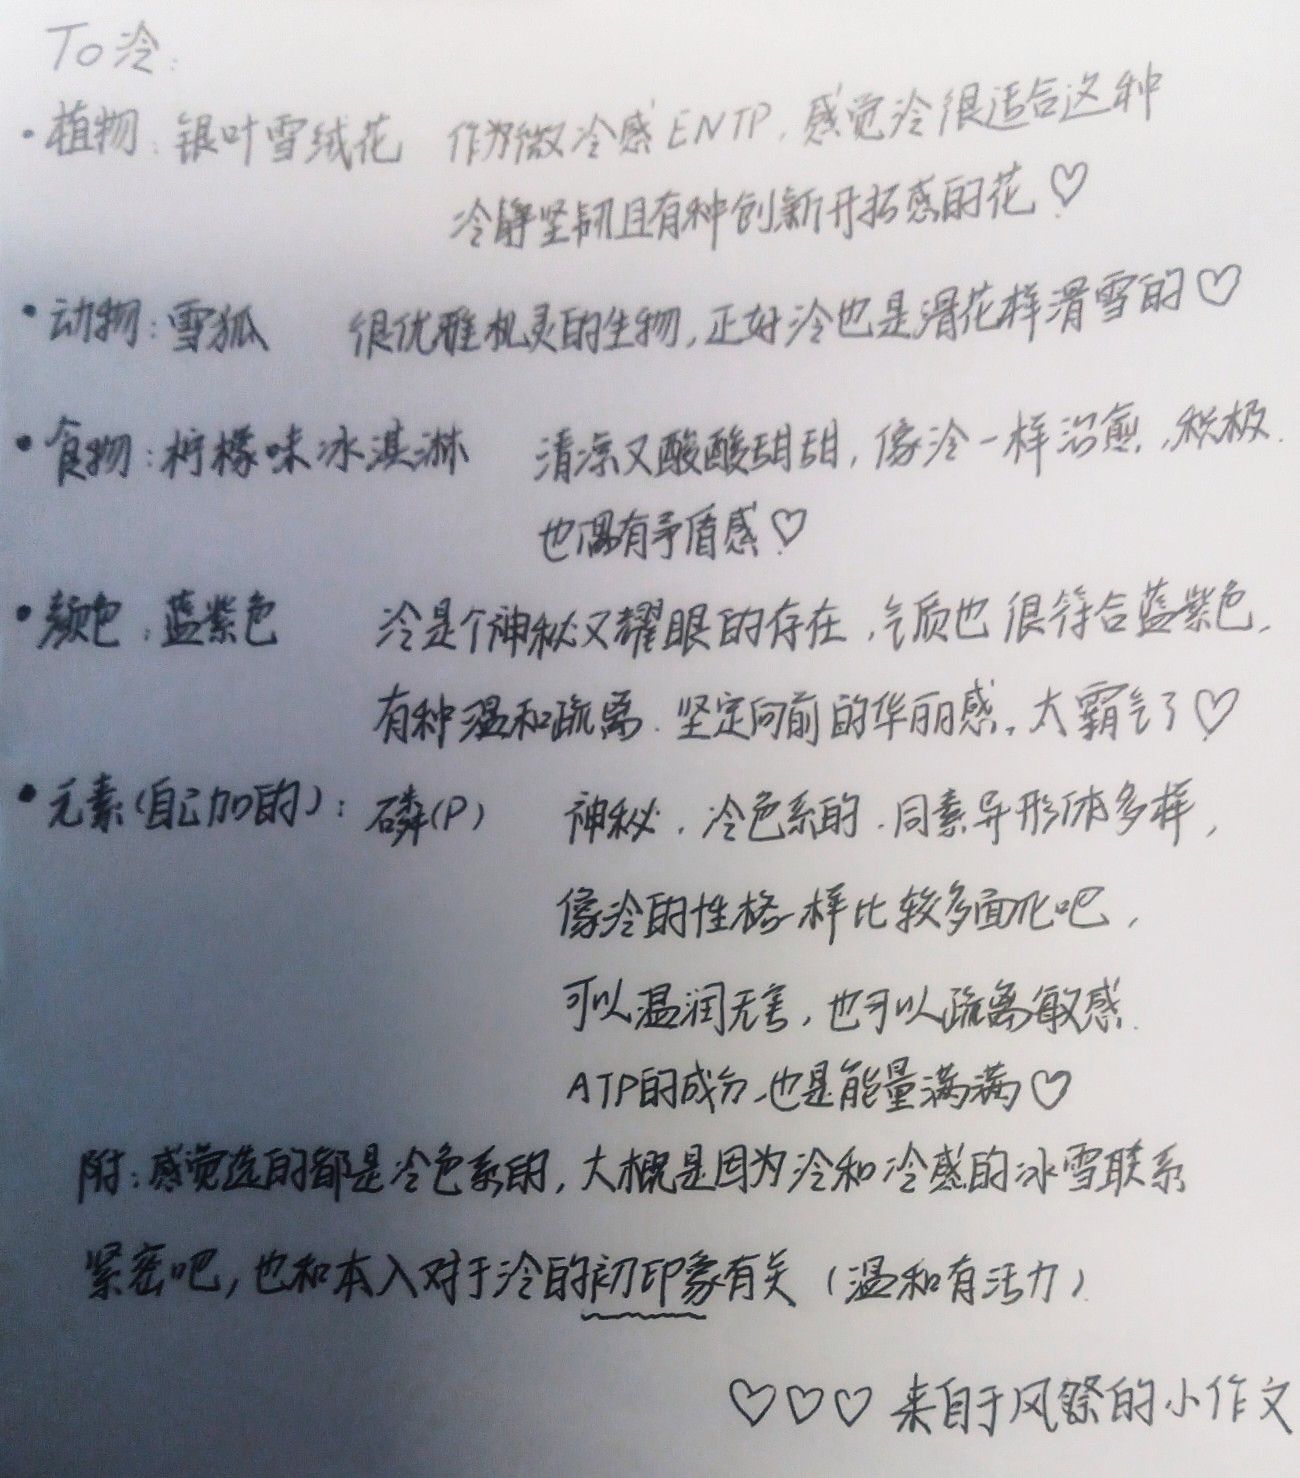 To 泠:
·植物:银叶雪绒花 作为微冷感ENTP,感觉泠很适合这种
冷静坚韧且有种创新开拓感的花♡
·动物:雪狐 很优雅机灵的生物,正好泠也是滑花样滑雪的♡
·食物:柠檬味冰淇淋 清凉又酸酸甜甜,像泠一样治愈,积极.
也偶有矛盾感♡
·颜色:蓝紫色 泠是个神秘又耀眼的存在,气质也很符合蓝紫色,
有种温和疏离.坚定向前的华丽感。太霸气了♡
·元素(自己加的):磷(P) 神秘.冷色系的.同素异形体多样,
像泠的性格一样比较多面化吧,
可以温润无害,也可以疏离敏感.
ATP的成分,也是能量满满♡
附:感觉选的都是冷色系的,大概是因为泠和冷感的冰雪联系
紧密吧,也和本人对于泠的初印象有关(温和有活力).
♡♡♡来自于风祭的小作文